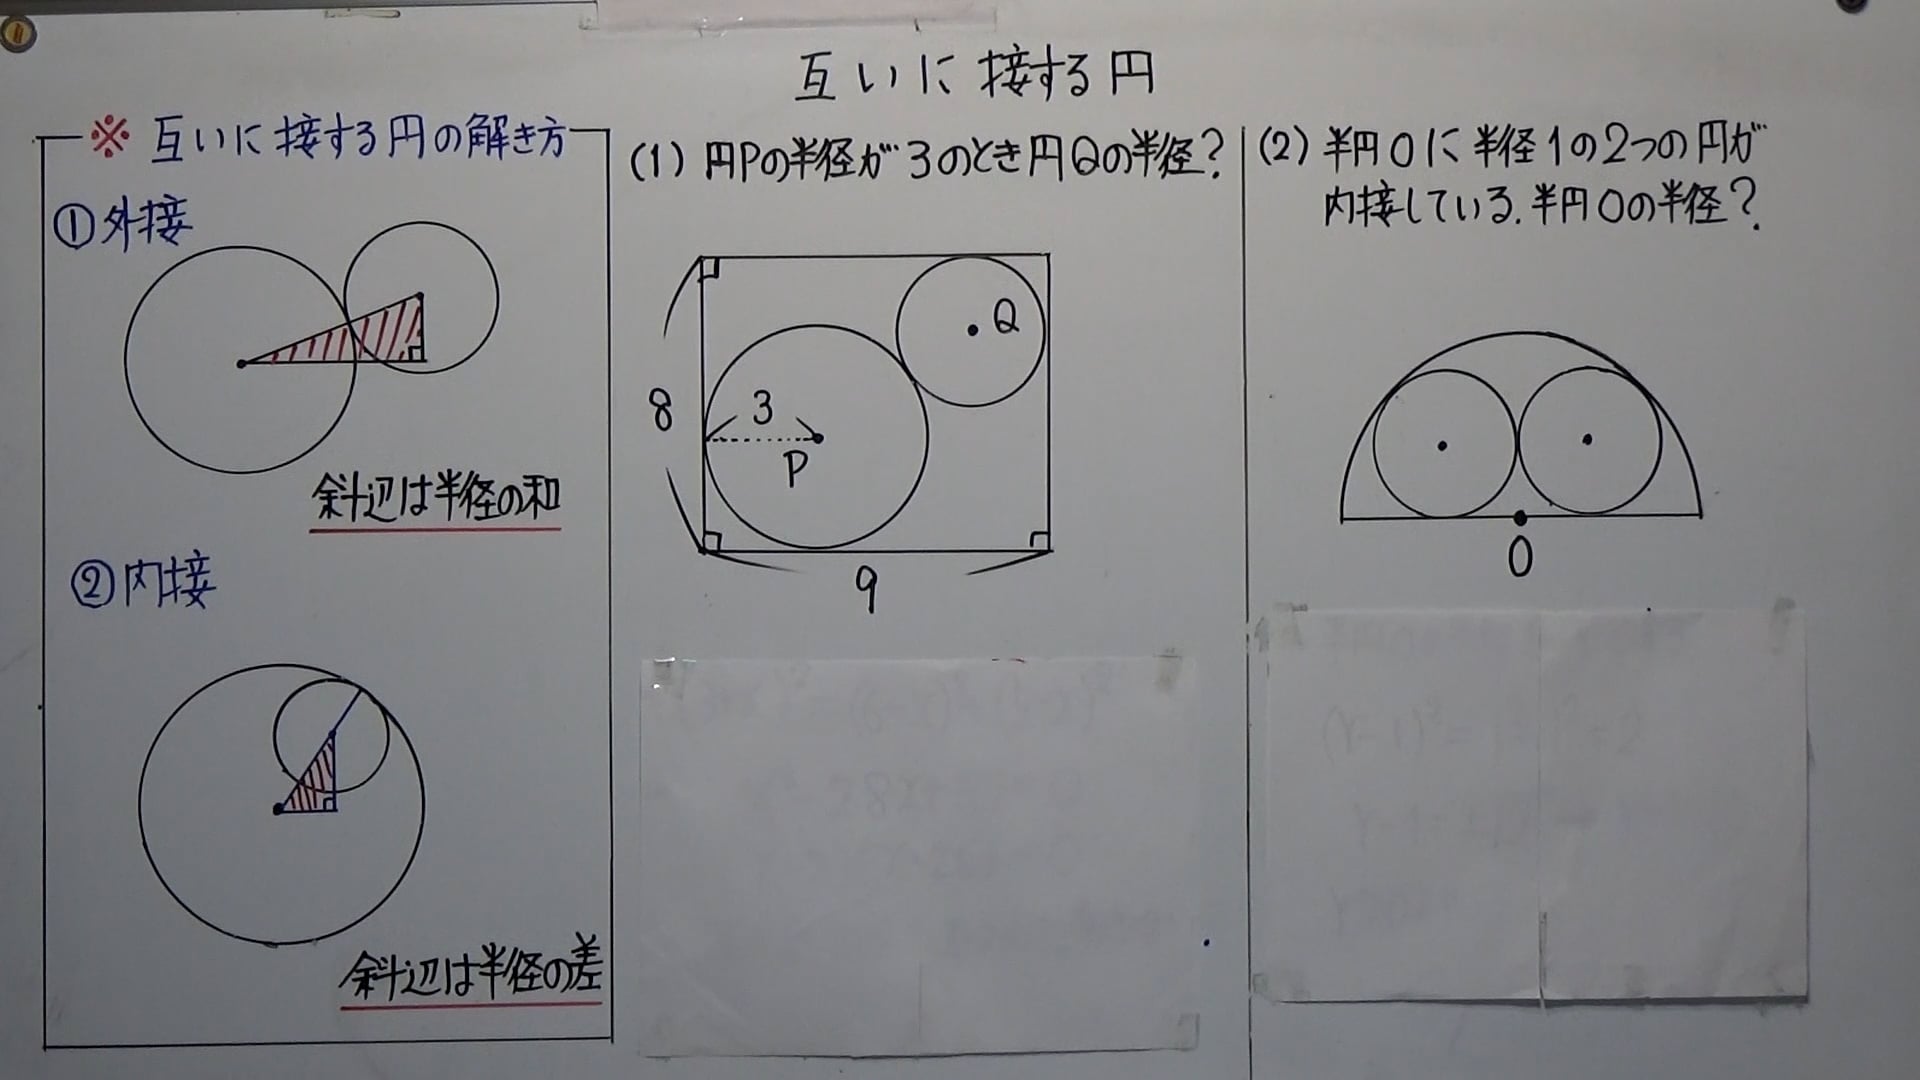 互いに接する円
※ 互いに接する円の解き方
①外接
斜辺は半径の和
②内接
斜辺は半径の差
(1) 円Pの半径が3のとき円Qの半径?
Q
8
3
P
9
(2) 半円Oに半径1の2つの円が
内接している.半円Oの半径?
O